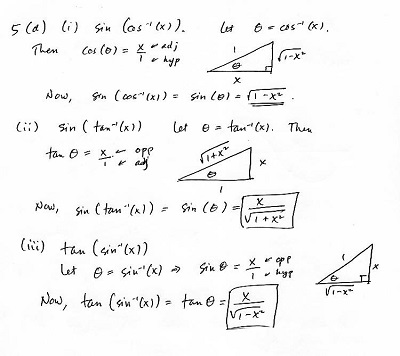 5 (d) (i) sin (cos⁻¹(x)). Let θ = cos⁻¹(x).
Then cos(θ) = x/1 ← adj ← hyp
1 θ x √1-x²
Now, sin (cos⁻¹(x)) = sin(θ) = √1-x².
(ii) sin (tan⁻¹(x)) Let θ = tan⁻¹(x). Then
tan θ = x/1 ← opp ← adj
√1+x² θ 1 x
Now, sin (tan⁻¹(x)) = sin (θ) = x/√1+x²
(iii) tan (sin⁻¹(x))
Let θ = sin⁻¹(x) ⇒ sin θ = x/1 ← opp ← hyp
1 θ x √1-x²
Now, tan (sin⁻¹(x)) = tan θ = x/√1-x²